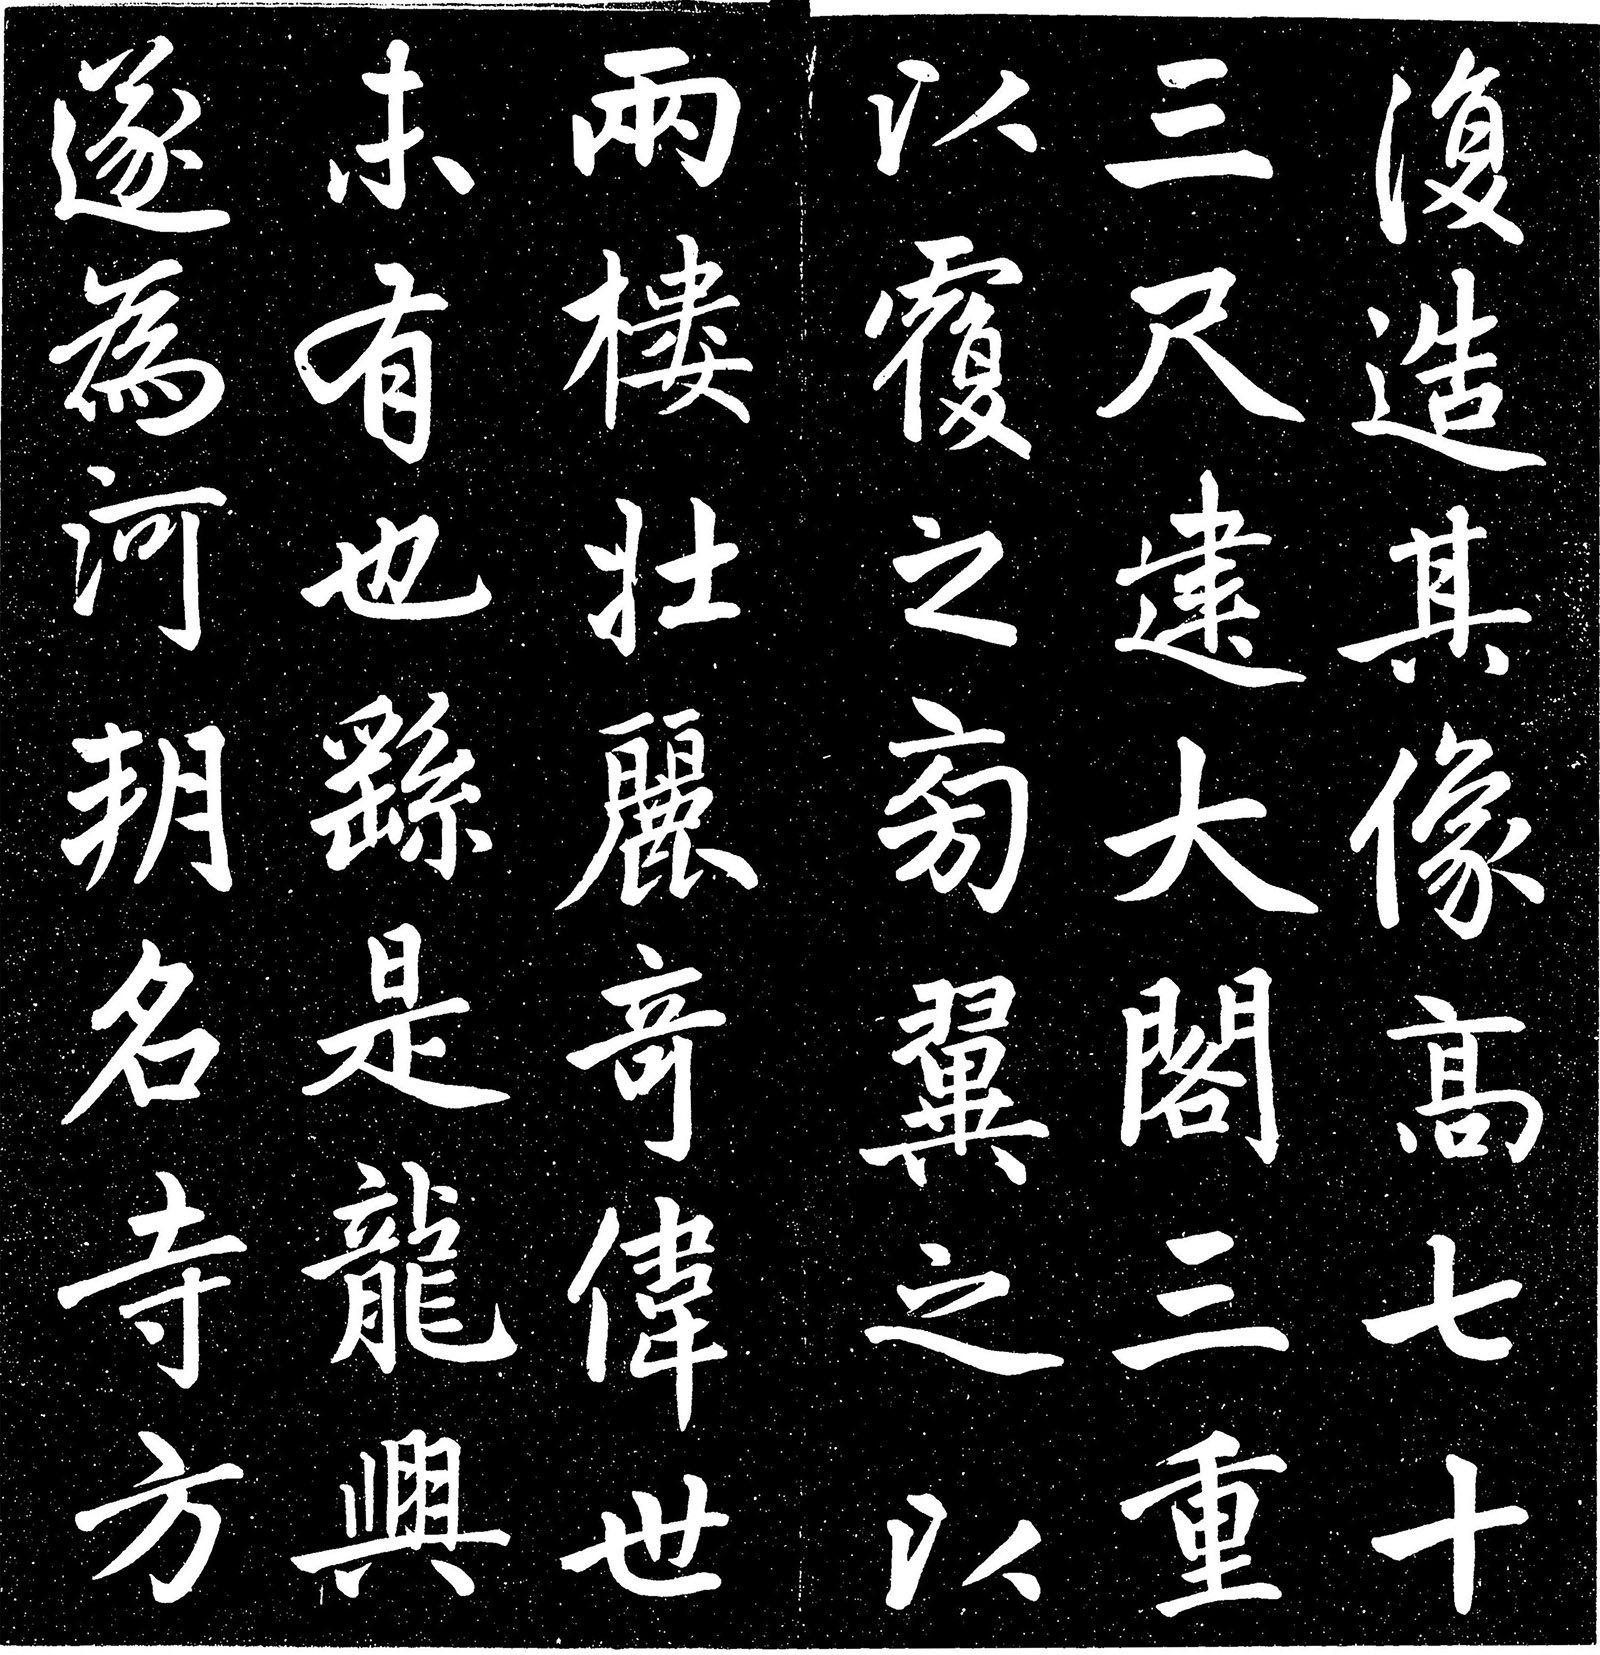 復造其像髙七十
三尺建大閣三重
以覆之旁翼之以
兩樓壯麗竒偉世
未有也繇是龍興
遂為河朔名寺方